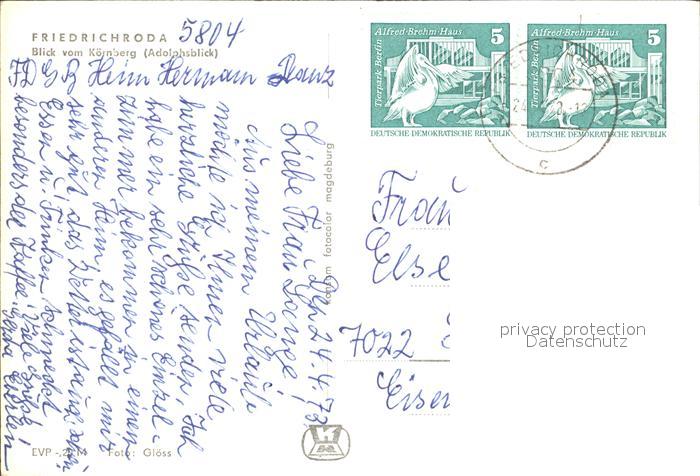 FRIEDRICHRODA 5804
Blick vom Körnberg (Adolphsblick)
FDGB Heim Hermann Danz
Den 24.4.78
Liebe Frau Lange!
Aus meinem Urlaub
möchte ich Ihnen viele
herzliche Grüße senden, Ich
habe ein sehr schönes Einzel-
zimmer bekommen in einem
anderen Heim, es gefällt mir
sehr gut, das Wetter ist auch schön
Essen u. Trinken schmeckt
besonders der Kaffee. Viele Grüße
EVP -,20 M Foto: Glöss
konsum fotocolor magdeburg
Alfred-Brehm-Haus 5
Tierpark Berlin
DEUTSCHE DEMOKRATISCHE REPUBLIK
Alfred-Brehm-Haus 5
Tierpark Berlin
DEUTSCHE DEMOKRATISCHE REPUBLIK
c
Frau
Else
7022
Eisen
privacy protection
Datenschutz